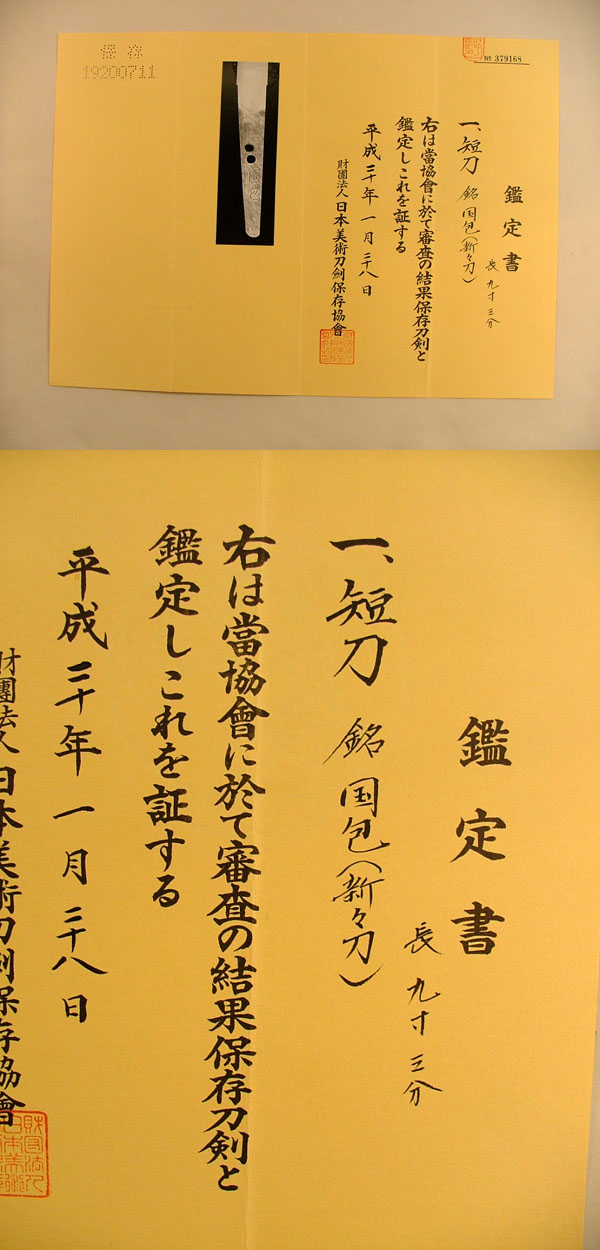 保存
19200711
№ 379168
鑑定書
一、短刀 銘 国包(新々刀)
長 九寸三分
右は當協會に於て審査の結果保存刀剣と
鑑定しこれを証する
平成二十年一月二十八日
財團法人 日本美術刀剣保存協會
鑑定書
一、短刀 銘 国包(新々刀)
長 九寸三分
右は當協會に於て審査の結果保存刀剣と
鑑定しこれを証する
平成二十年一月二十八日
財團法人 日本美術刀剣保存協會